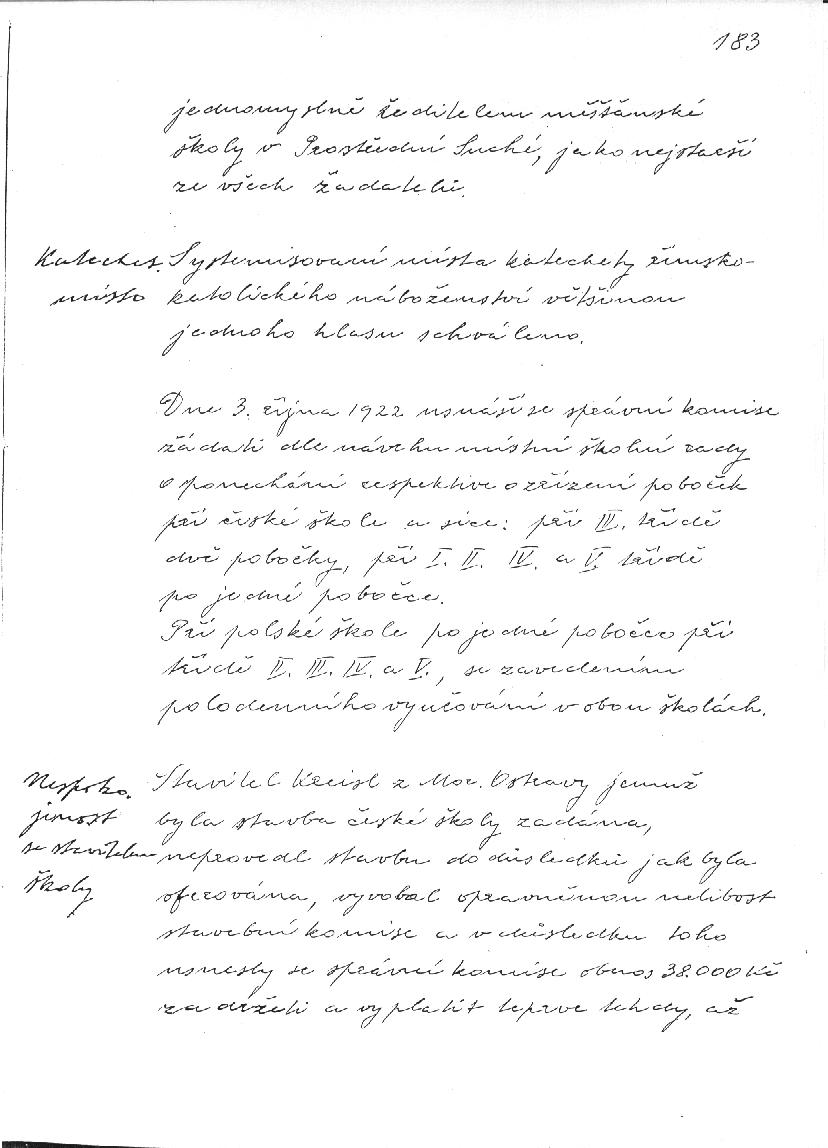 183
jednomyslně ředitelem měšťanské
školy v Prostřední Suché, jako nejstarší
ze všech žadatelů.
Katechet. Systemisovaní místa katechety římsko-
místo katolického náboženství většinou
jednoho hlasu schváleno.
Dne 3. října 1922 usnáší se správní komise
žádati dle návrhu místní školní rady
o ponechání respektive o zřízení poboček
při české škole a sice: při III. třídě
dvě pobočky, při I. II. IV. a V. třídě
po jedné pobočce.
Při polské škole po jedné pobočce při
třídě II. III. IV. a V., se zavedením
polodenního vyučování v obou školách.
Nespoko.
jenost
se stavitelem
školy
Stavitel Kreisl z Mor. Ostravy jemuž
byla stavba české školy zadána,
neprovedl stavbu do důsledků jak byla
oferována, vyvolal oprávněnou nelibost
stavební komise a v důsledku toho
usnesly se správní komise obnos 38.000 Kč
zadržeti a vyplatit teprve tehdy, až